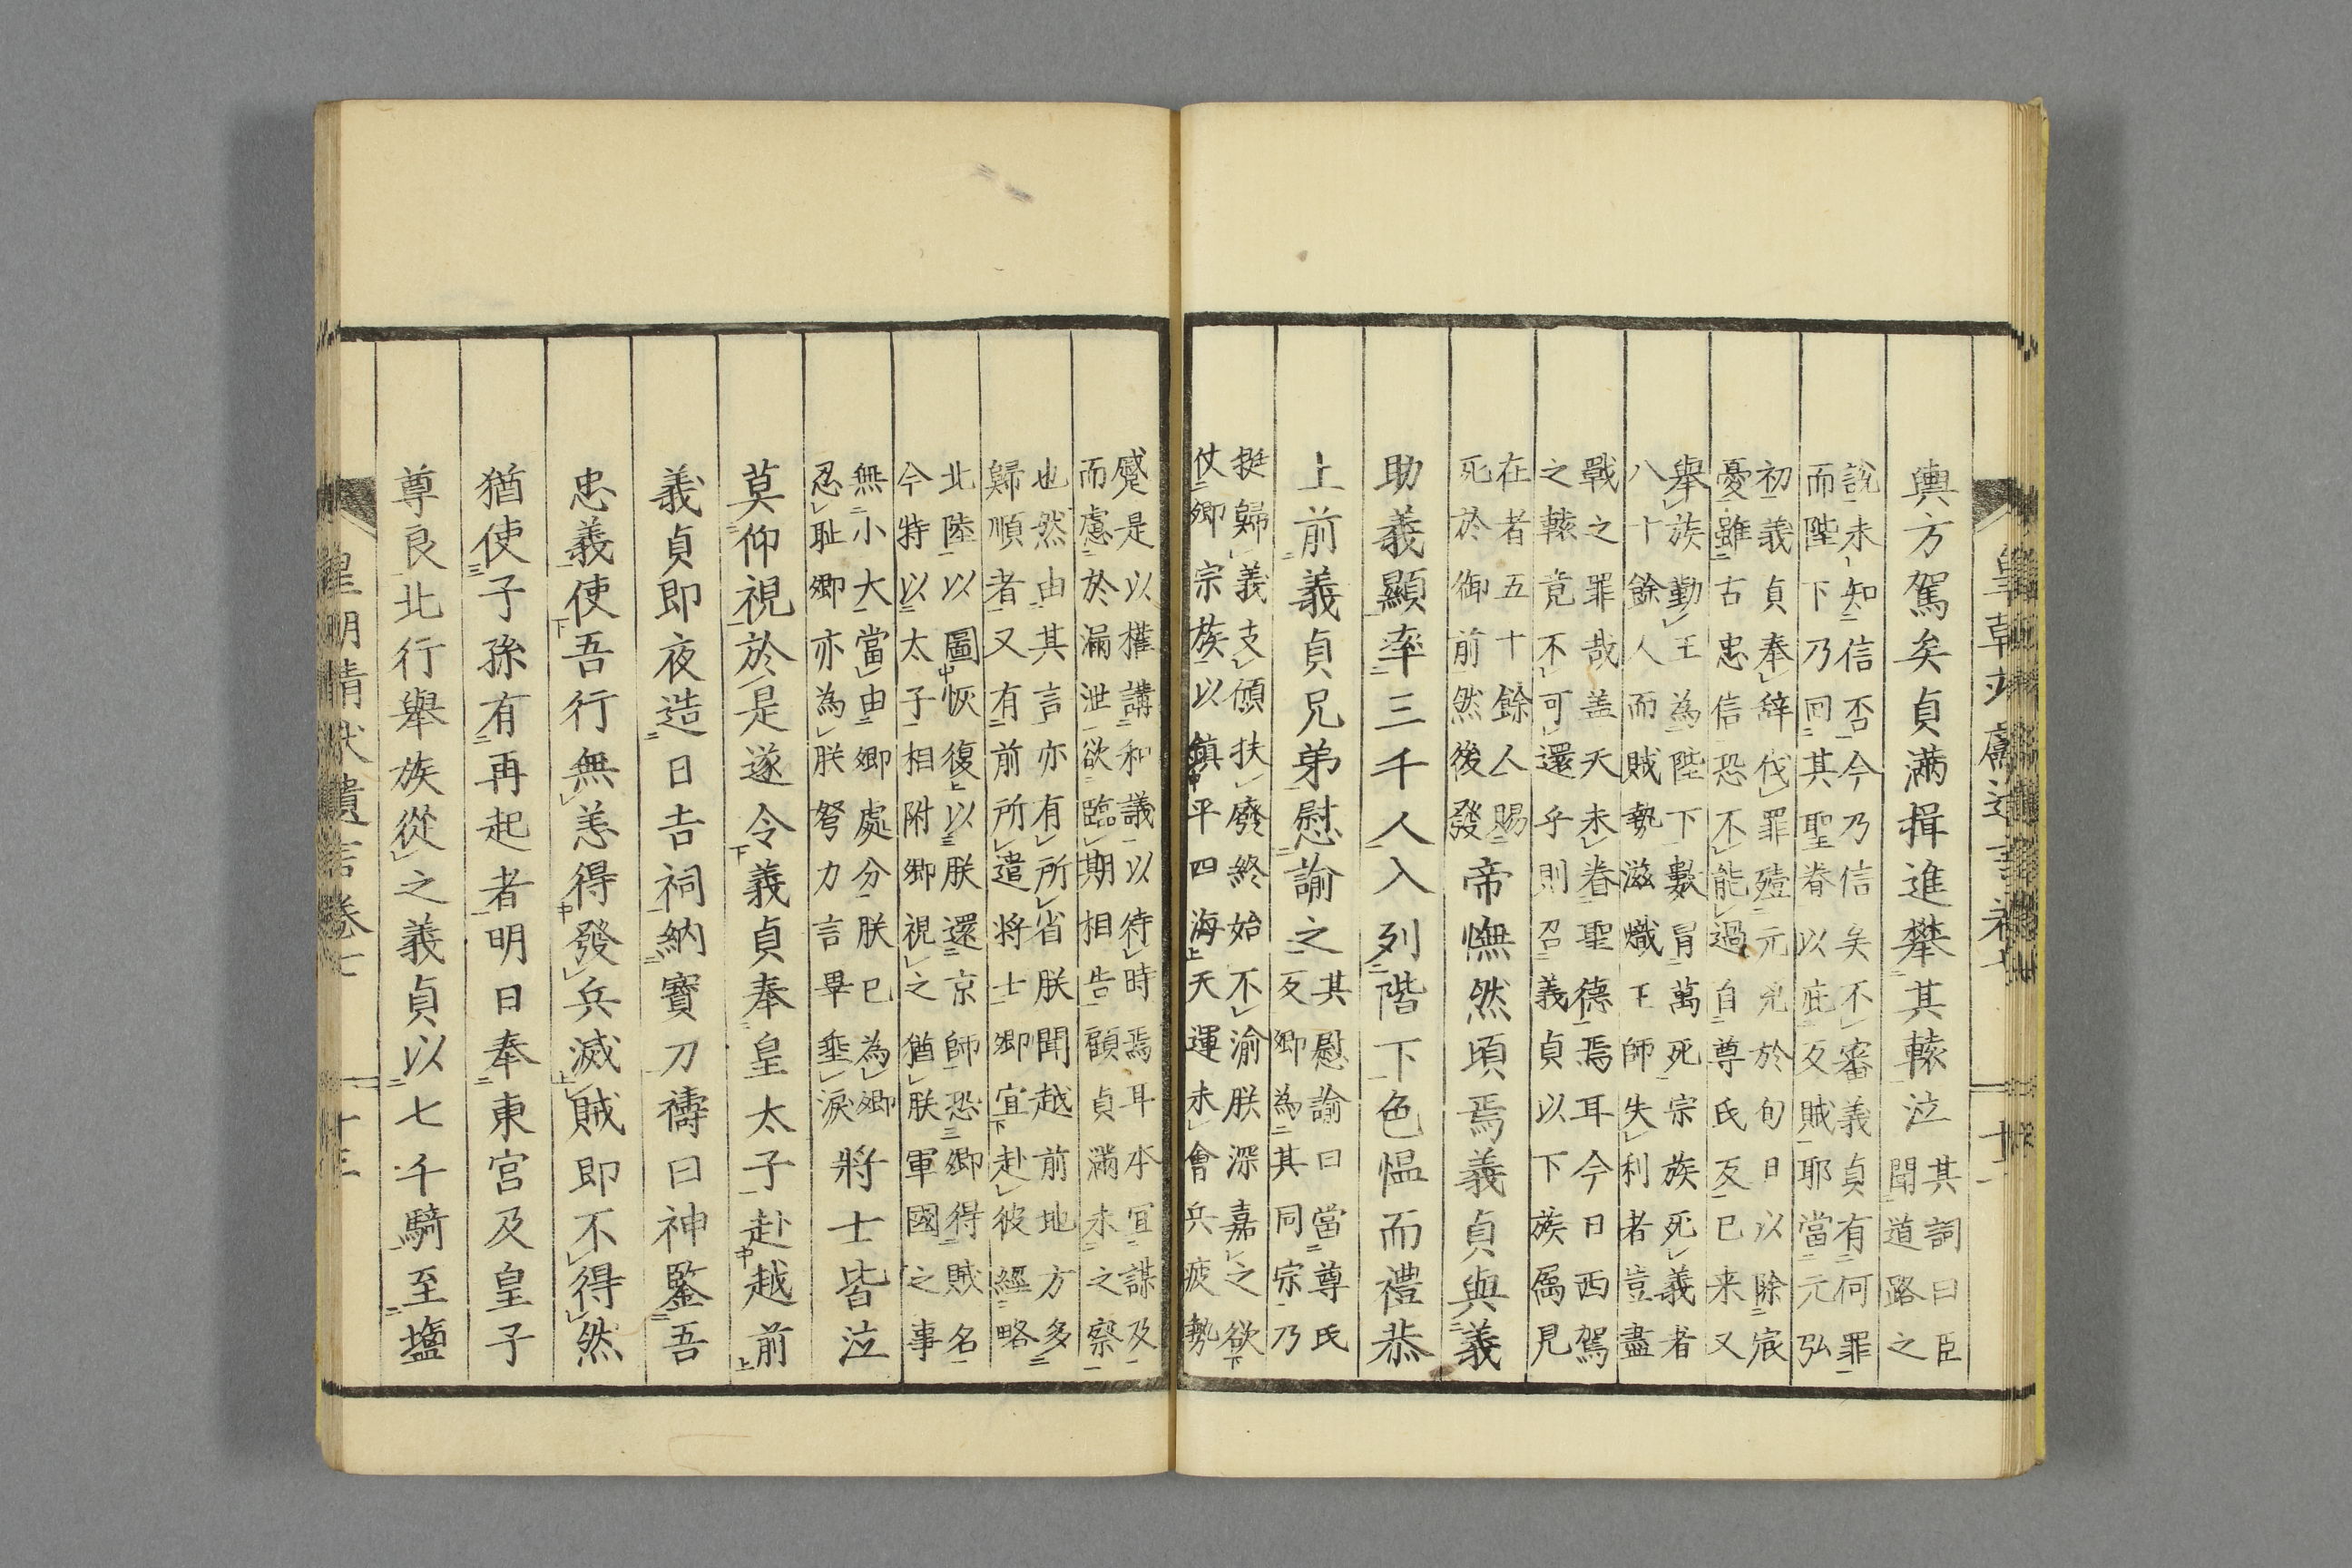 輿方駕矣貞満揖進攀其轅泣
其詞曰臣
聞道路之
說未知信否今乃信矣不審義貞有何罪
而陛下乃回其聖眷以庇反賊耶當元弘
初義貞奉辭伐罪殪元兇於旬日以除宸
憂雖古忠信恐不能過自尊氏反已来又
舉族勤王為陛下數冒萬死宗族死義者
八十餘人而賊勢滋熾王師失利者豈盡
戰之罪哉盖天未眷聖德焉耳今日西駕
之轅竟不可還乎則召義貞以下族属見
在者五十餘人賜
死於御前然後發
帝憮然頃焉義貞與義
助義顯率三千人入列階下色愠而禮恭
上前義貞兄弟慰諭之
其慰諭曰當尊氏
反卿為其同宗乃
挺歸義支傾扶廢終始不渝朕深嘉之欲
仗卿宗族以鎮平四海天運未會兵疲勢
蹙是以權講和議以待時焉耳本宜謀及
而慮於漏泄欲臨期相告顧貞滿未之察
也然由其言亦有所省朕聞越前地方多
歸順者又有前所遣將士卿宜赴彼經略
北陸以圖恢復以朕還京師恐卿得賊名
今特以太子相附卿視之猶朕軍國之事
無小大當由卿處分朕已為卿
忍耻卿亦為朕努力言畢垂淚
將士皆泣
莫仰視於是遂令義貞奉皇太子赴越前
義貞即夜造日吉祠納寶刀禱曰神鑒吾
忠義使吾行無恙得發兵滅賊即不得然
猶使子孫有再起者明日奉東宮及皇子
尊良北行舉族從之義貞以七千騎至塩